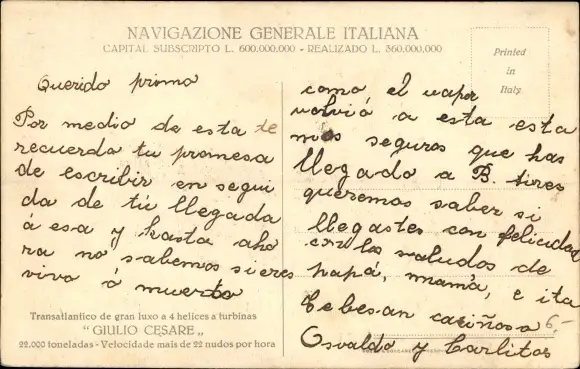 NAVIGAZIONE GENERALE ITALIANA
CAPITAL SUBSCRIPTO L. 600.000.000 - REALIZADO L. 360,000,000
Printed
in
Italy
Querido primo
Por medio de esta te
recuerdo tu promesa
de escribir en segui
da de tú llegada
á esa y hasta aho
ra no sabemos si eres
vivo ó muerto
como el vapor
volvió a esta esta
mos seguros que has
llegado a B. Aires
queremos saber si
llegastes con felicidad
con los saludos de
papá, mamá, e ita
te besan cariñosa
6,-
Osvaldo y Carlitos
Transatlantico de gran luxo a 4 helices a turbinas
“ GIULIO CESARE „
22.000 toneladas - Velocidade mais de 22 nudos por hora